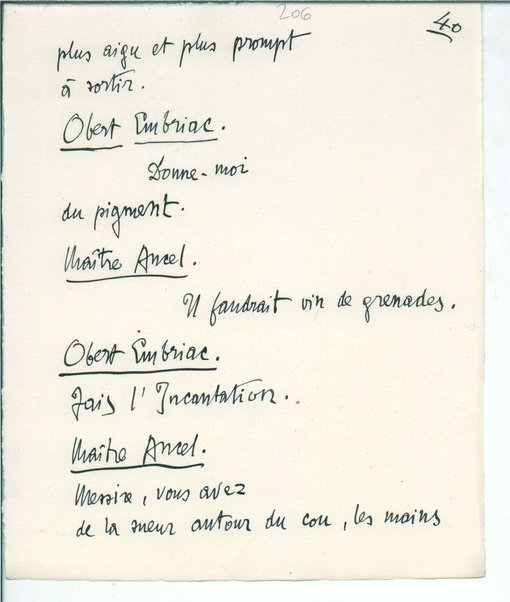 206
40
plus aigu et plus prompt
à sortir.
Obert Embriac.
Donne-moi
du pigment.
Maître Ancel.
Il faudrait vin de grenades.
Obert Embriac.
Fais l'Incantation.
Maître Ancel.
Messire, vous avez
de la sueur autour du cou, les mains